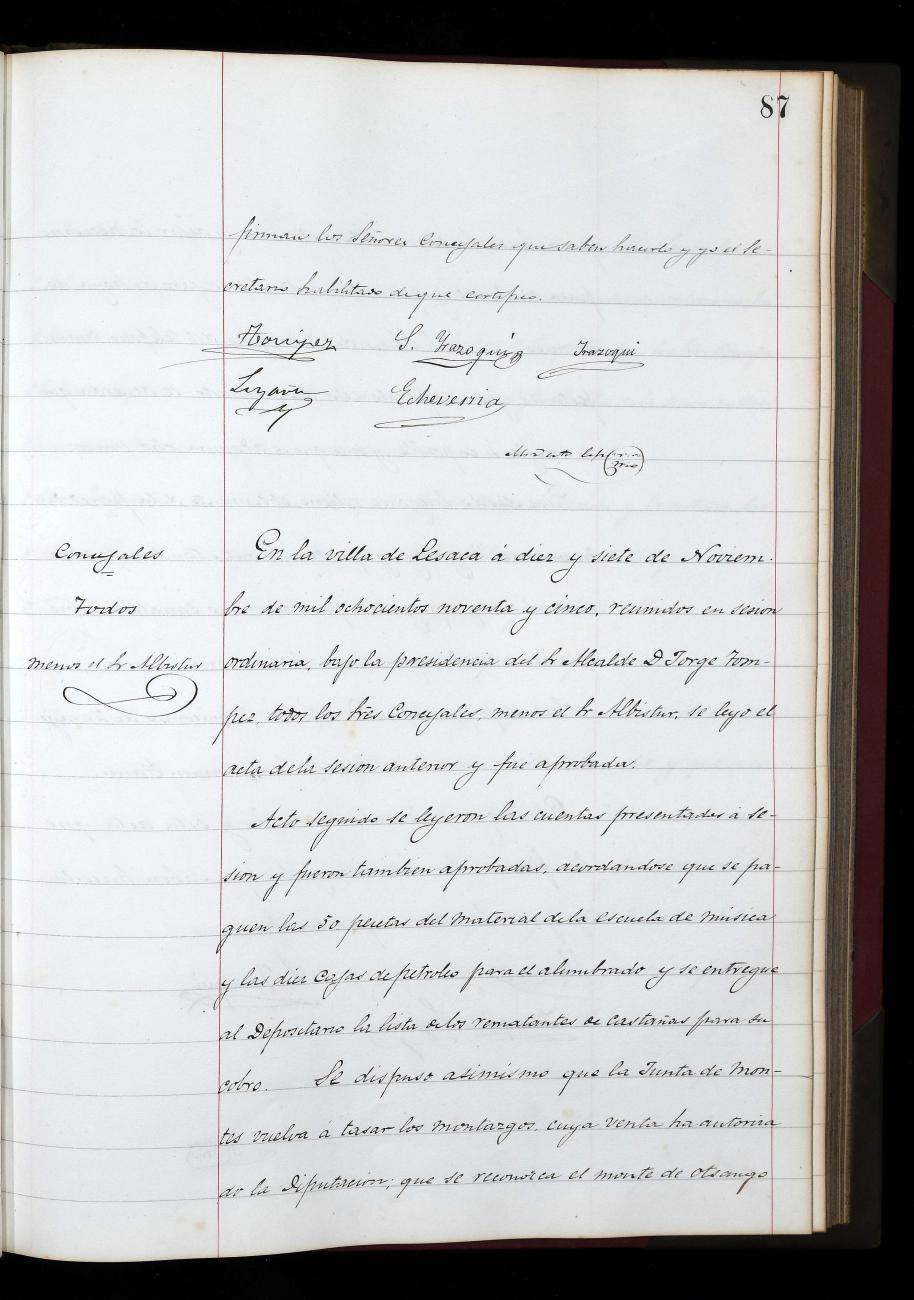 87
firman los Señores Concejales que saben hacerlo y yo el Se-
cretario habilitado de que certifico.
S. Yrazoqui Irazoqui
Echeverria
Concejales
Todos
menos el Sr Albistur
En la villa de Lesaca á diez y siete de Noviem-
bre de mil ochocientos noventa y cinco, reunidos en sesion
ordinaria, bajo la presidencia del Sr Alcalde D Jorge Tom-
pez todos los Sres Concejales, menos el Sr Albistur, se leyo el
acta de la sesion anterior y fue aprobada.
Acto seguido se leyeron las cuentas presentadas á se-
sion y fueron tambien aprobadas, acordandose que se pa-
guen las 50 pesetas del material de la escuela de música
y las diez cajas de petroleo para el alumbrado y se entregue
al Depositario la lista de los rematantes de castañas para su
cobro. Se dispuso asimismo que la Junta de Mon-
tes vuelva á tasar los montazgos, cuya venta ha autoriza
do la Diputacion; que se reconozca el monte de Otsango